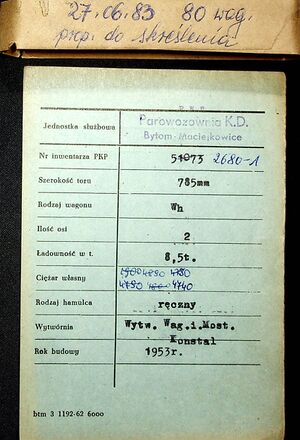 27.06.83 80 wag.
prop. do skreślenia
P.K.P.
Jednostka służbowa Parowozownia K.D.
Bytom-Maciejkowice
Nr inwentarza PKP 51073 2680-1
Szerokość toru 785mm
Rodzaj wagonu Wh
Ilość osi 2
Ładowność w t. 8,5t.
Ciężar własny 4900 4890 4780
4790 4740
Rodzaj hamulca ręczny
Wytwórnia Wytw. Wag.i.Most.
Konstal
Rok budowy 1953r.
btm 3 1192-62 6000